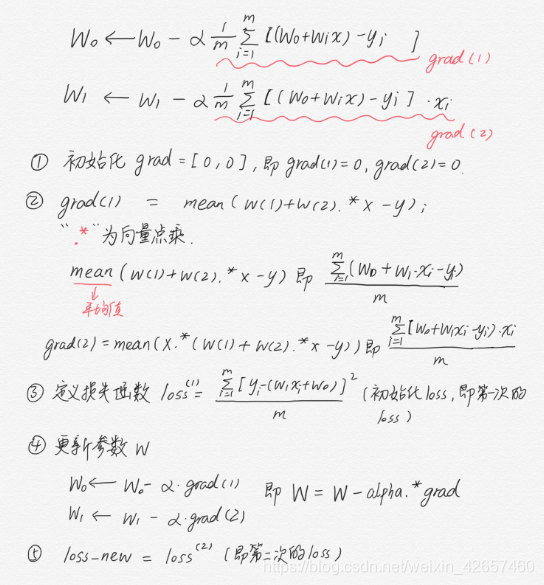 W₀ ← W₀ - α 1/m ∑ᵢ₌₁ᵐ [(W₀+W₁x)-yᵢ ]
grad(1)
W₁ ← W₁ - α 1/m ∑ᵢ₌₁ᵐ [(W₀+W₁x)-yᵢ] ·xᵢ
grad(2)
① 初始化 grad=[0,0],即 grad(1)=0, grad(2)=0.
② grad(1) = mean(W(1)+W(2).*x-y);
“.*”为向量点乘.
mean(W(1)+W(2).*x-y) 即 ∑ᵢ₌₁ᵐ(W₀+W₁·xᵢ-yᵢ)/m
平均值
grad(2)=mean(x.*(W(1)+W(2).*x-y)) 即 ∑ᵢ₌₁ᵐ[W₀+W₁xᵢ-yᵢ)·xᵢ/m
③ 定义损失函数 loss⁽¹⁾= ∑ᵢ₌₁ᵐ[yᵢ-(W₁xᵢ+W₀)]²/m (初始化loss,即第一次的
loss)
④ 更新参数 W
W₀ ← W₀ - α·grad(1)
即 W = W-alpha.*grad
W₁ ← W₁ - α·grad(2)
⑤ loss_new = loss⁽²⁾ (即第二次的loss)
https://blog.csdn.net/weixin_42657460